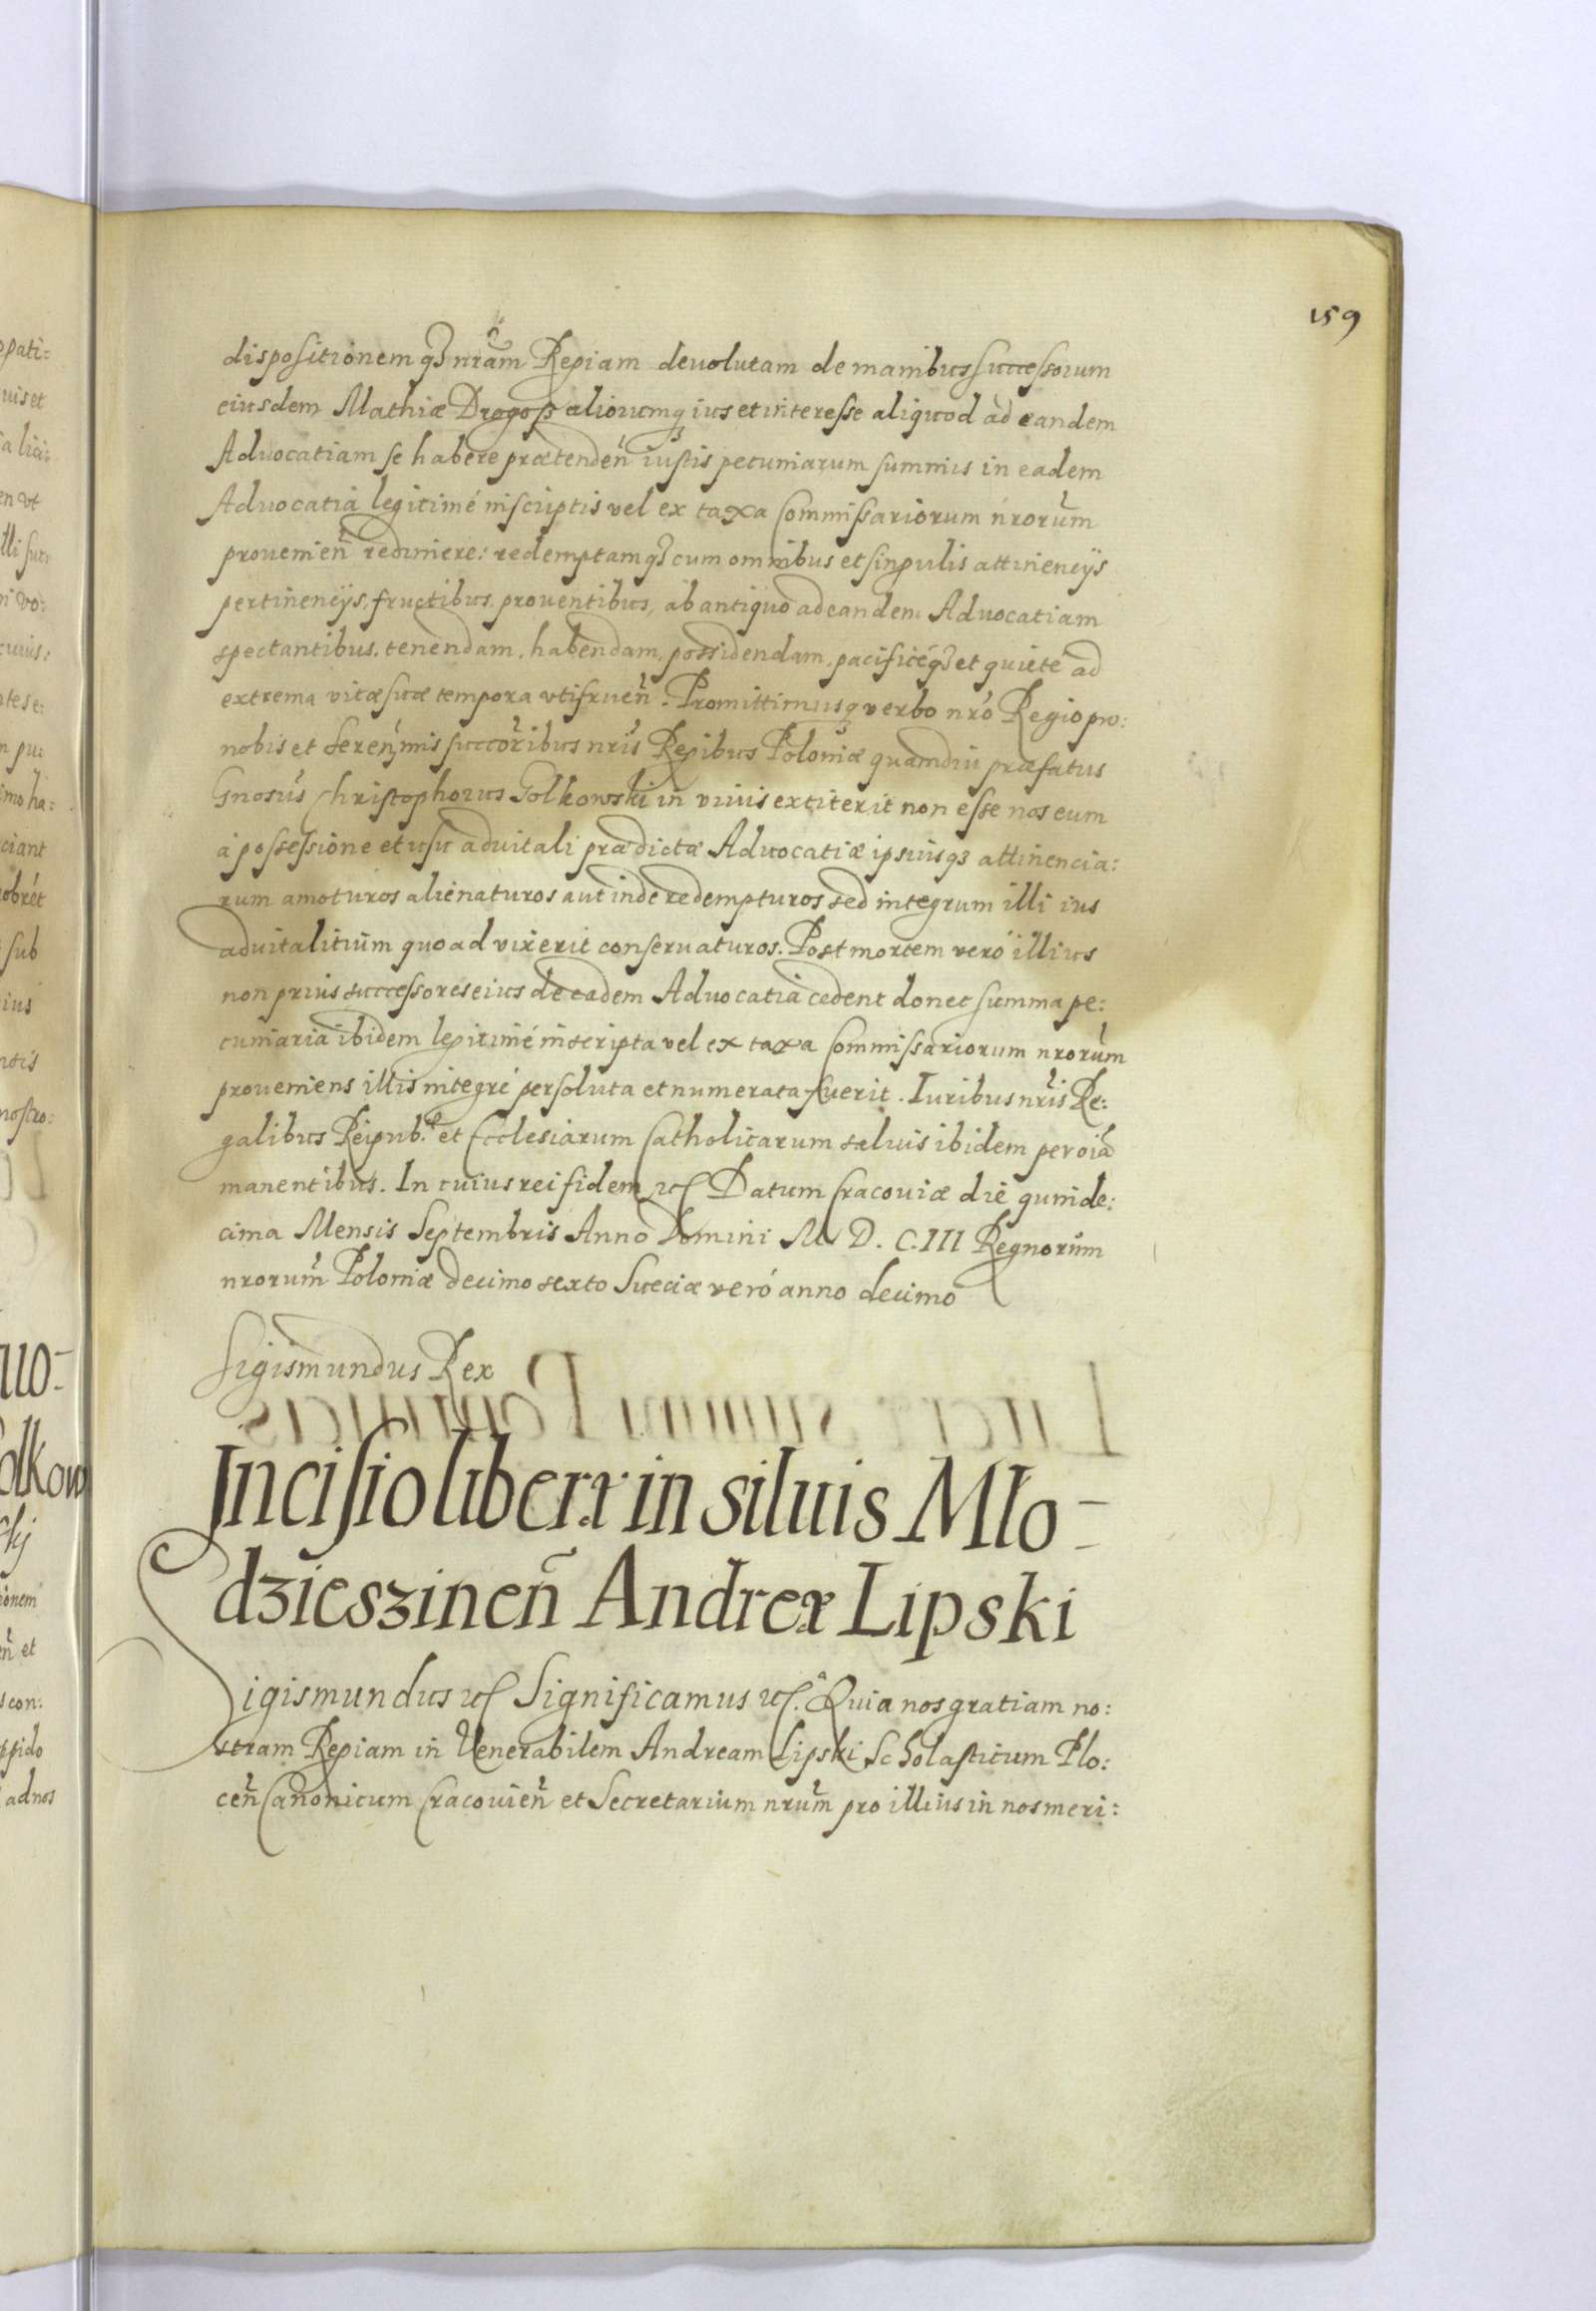 159
dispositionem q3 nrãm Regiam deuolutam de manibus successorum
eiusdem Mathiæ Drogosz aliorumq3 ius et interesse aliquod ad eandem
Aduocatiam se habere prætendeñ iustis pecuniarum summis in eadem
Aduocatia legitimé inscriptis vel ex taxa Commissariorum nrorum̃
prouenieñ redimere: redemptamq3 cum omnibus et singulis attinencijs
pertinencijs, fructibus, prouentibus, ab antiquo ad eandem Aduocatiam
spectantibus. tenendam, habendam, possidendam, pacificéq3 et quiete ad
extrema vitæ suæ tempora vtifrueñ. Promittimusq3 verbo nr̃o Regio pro:
nobis et Sereñmis succor̃ibus nris̃ Regibus Poloniæ quamdiu præfatus
Gnosus̃ Christophorus Golkowski in viuis extiterit non esse nos eum
à possessione et usu aduitali prædictæ Aduocatiæ ipsiusq3 attinencia:
rum amoturos alienaturos aut inde redempturos sed integrum illi ius
aduitalitium quoad vixerit conseruaturos. Post mortem veró illius
non prius successores eius de eadem Aduocatia cedent donec summa pe:
cuniaria ibidem legitimé inscripta vel ex taxa Commissariorum nrorum̃
proueniens illis integré persoluta et numerata fuerit. Iuribus nris̃ Re:
galibus Reipub.ᵉ et Ecclesiarum Catholicarum saluis ibidem per oĩa
manentibus. In cuius rei fidem etc Datum Cracouiæ die quinde:
cima Mensis Septembris Anno Domini M D. C. III Regnorum
nrorum̃ Poloniæ decimo sexto Sueciæ veró anno decimo
Sigismundus Rex
Incisio liberæ in siluis Mło-
dzieszineñ Andreæ Lipski
Sigismundus etc Significamus etc. Quia nos gratiam no:
stram Regiam in Venerabilem Andream Lipski Scholasticum Plo:
ceñ Canonicum Cracouieñ et Secretarium nrum̃ pro illius in nos meri: